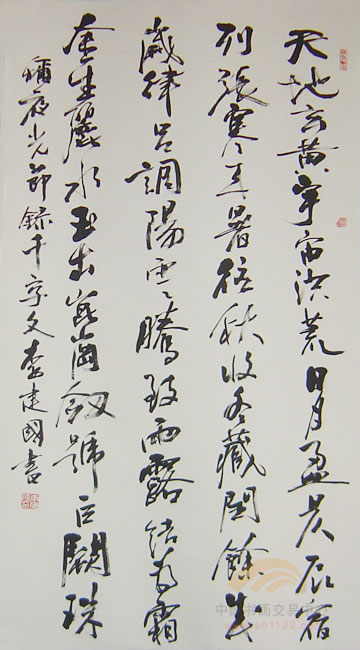 天地玄黄宇宙洪荒日月盈昃辰宿
列張寒来暑往秋收冬藏閏餘成
歲律呂調陽雲騰致雨露結為霜
金生麗水玉出崑崗劔號巨闕珠
稱夜光節録千字文李建國書
中国书画交易中心
www.sh1122.com